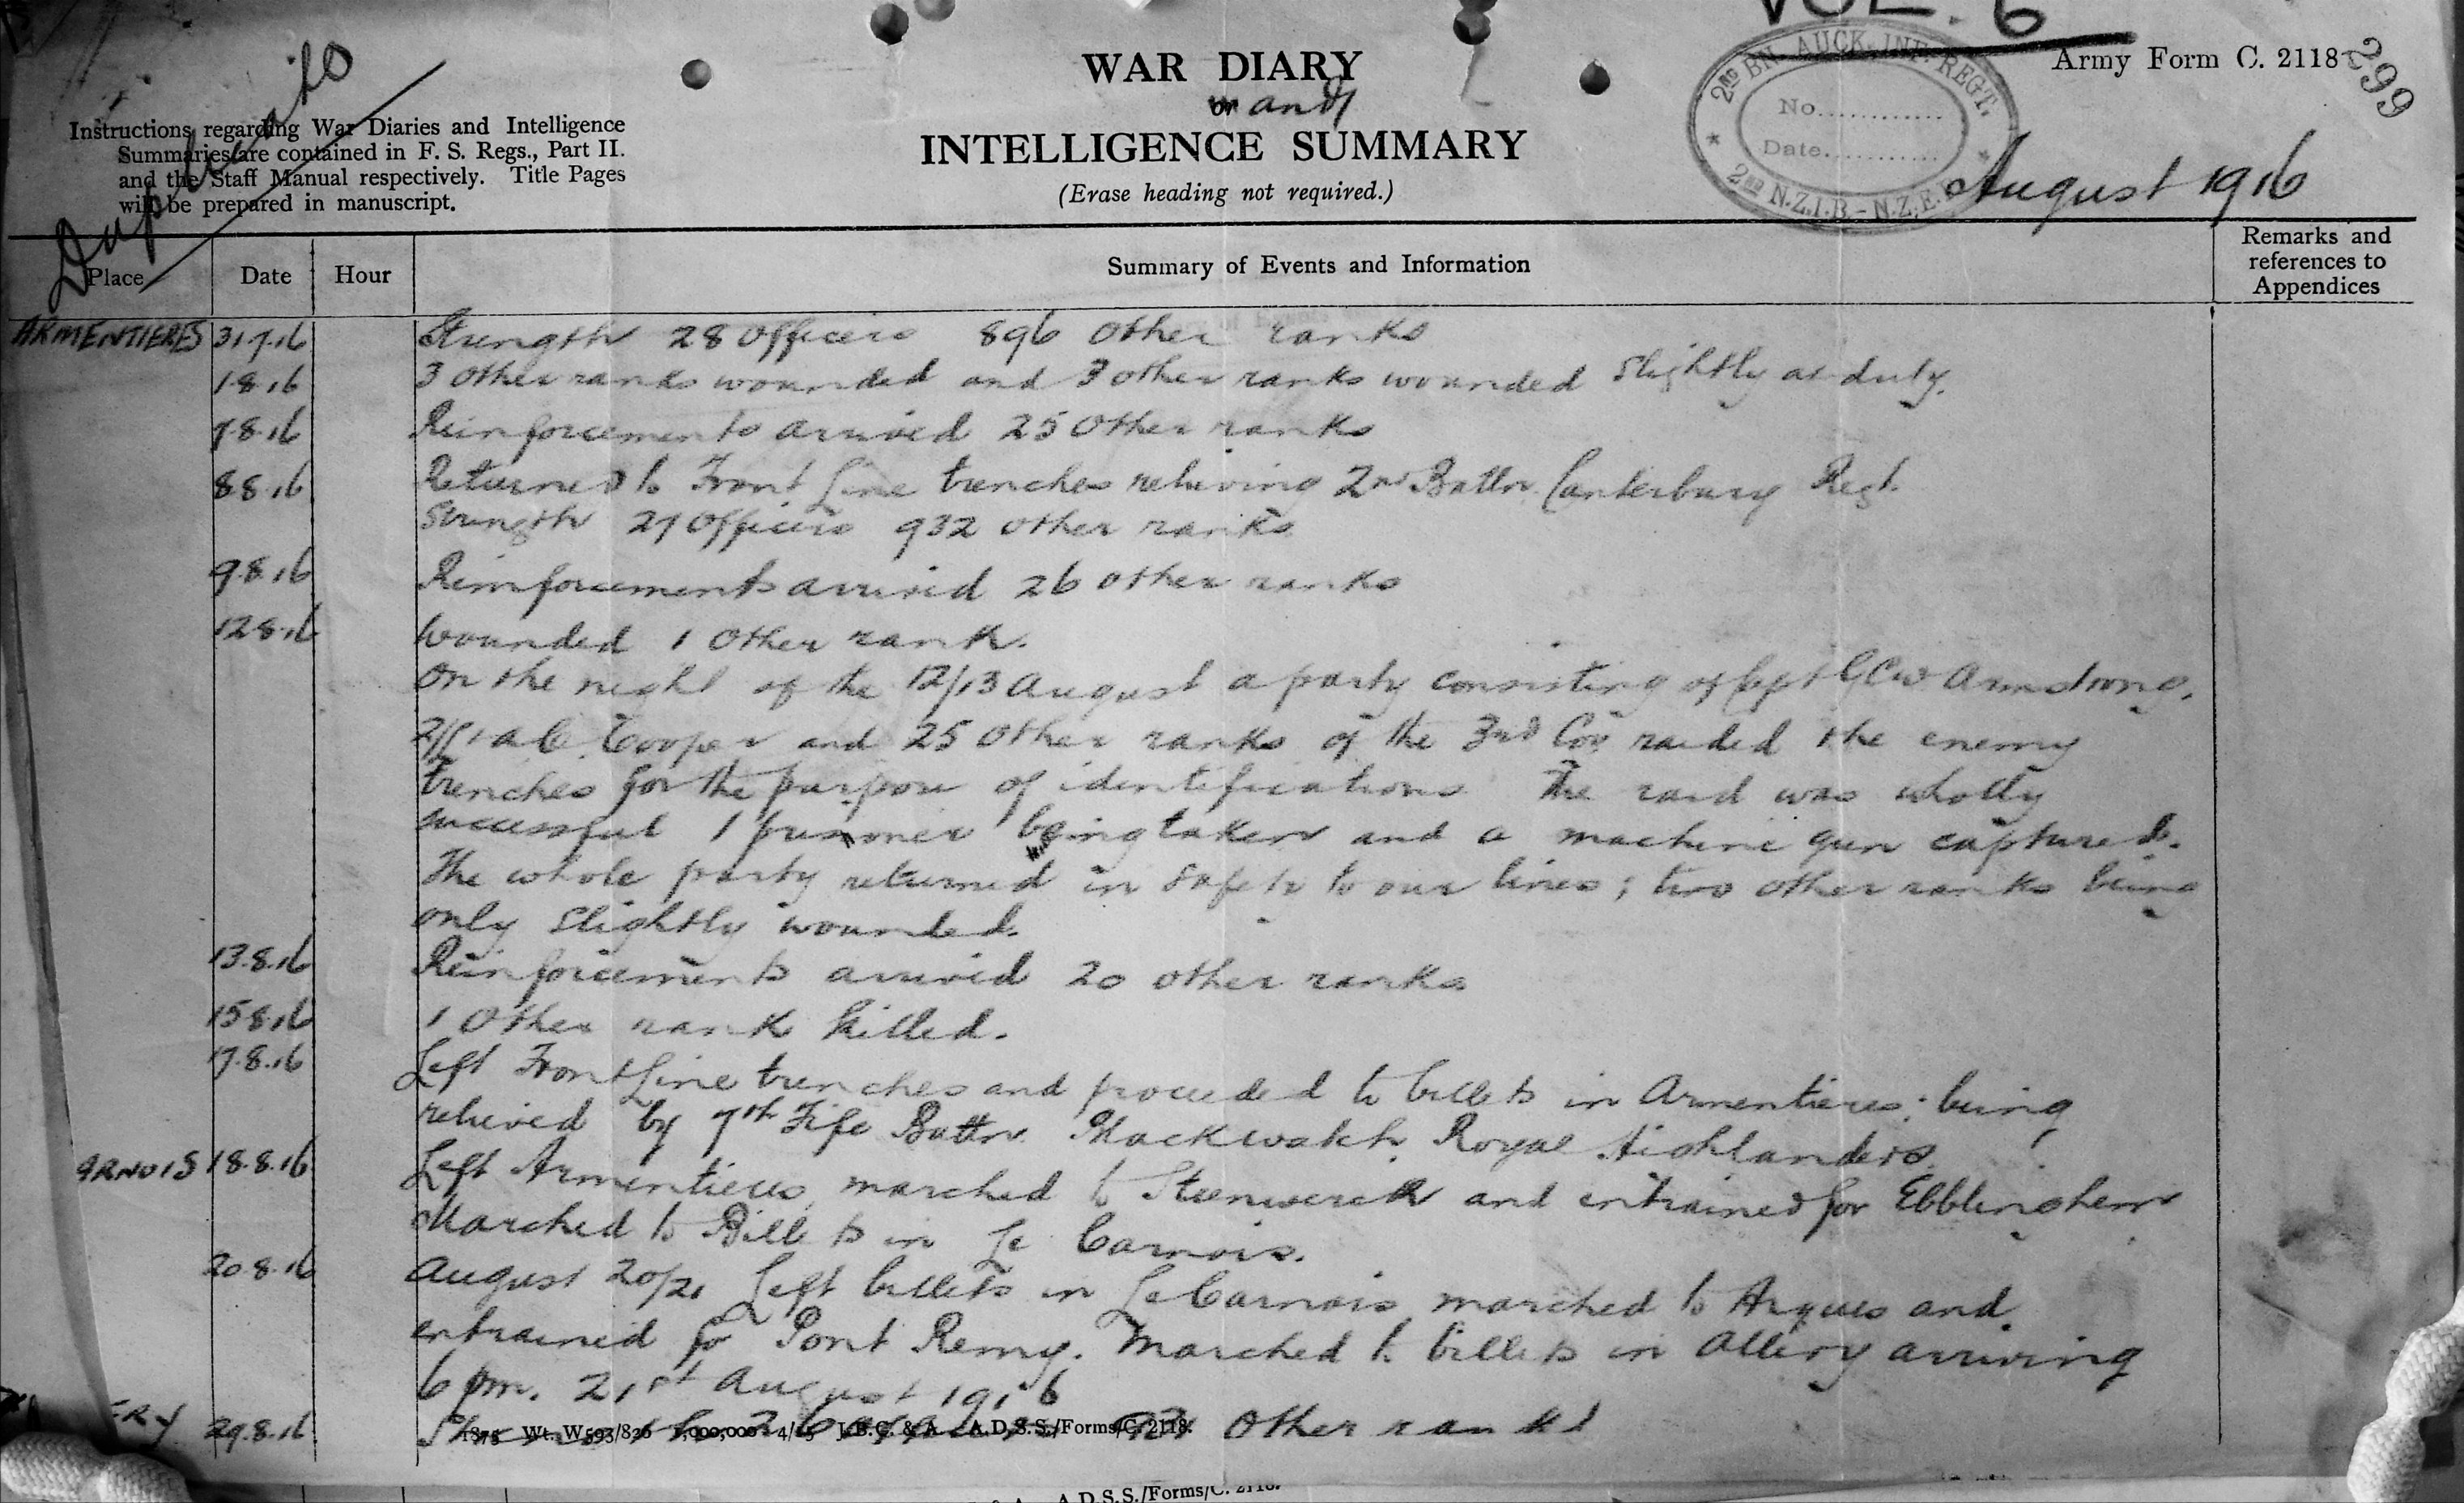 VOL. 6
Duplicate
WAR DIARY
or and
INTELLIGENCE SUMMARY
(Erase heading not required.)
Instructions regarding War Diaries and Intelligence
Summaries are contained in F. S. Regs., Part II.
and the Staff Manual respectively. Title Pages
will be prepared in manuscript.
2ND BN. AUCK. INF. REGT.
No.............
Date............
2ND N.Z.I.B. - N.Z.E.F.
Army Form C. 2118
299
August 1916
Place Date Hour Summary of Events and Information Remarks and
references to
Appendices
ARMENTIERES 31.7.16 Strength 28 Officers 896 Other ranks
1.8.16 3 Other ranks wounded and 3 other ranks wounded slightly at duty.
7.8.16 Reinforcements arrived 25 Other ranks
8.8.16 Returned to Front Line trenches relieving 2nd Battn. Canterbury Regt.
Strength 27 Officers 932 other ranks
9.8.16 Reinforcements arrived 26 other ranks
12.8.16 Wounded 1 Other rank.
On the night of the 12/13 August a party consisting of Capt Armstrong,
2/Lt A C Cooper and 25 Other ranks of the 3rd Coy raided the enemy
trenches for the purpose of identifications The raid was wholly
successful 1 prisoner being taken and a machine gun captured.
The whole party returned in safety to our lines; two other ranks being
only slightly wounded.
13.8.16 Reinforcements arrived 20 other ranks
15.8.16 1 Other rank killed.
17.8.16 Left Front Line trenches and proceeded to billets in Armentieres; being
relieved by 7th Fife Battn. Blackwatch Royal Highlanders.
18.8.16 Left Armentieres, marched to Steenwerck and entrained for Ebblinghem
Marched to Billets in Le Carnois.
20.8.16 August 20/21 Left billets in Le Carnois marched to Arques and
entrained for Pont Remy. Marched to billets in Allery arriving
6 pm. 21st August 1916
29.8.16 Other ranks
1875 Wt. W593/826 1,000,000 4/15 J.B.C. & A. A.D.S.S./Forms/C. 2118.
A.D.S.S./Forms/C. 2118.